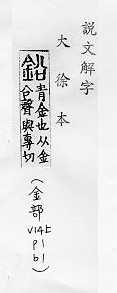 說文解字
大徐本
鉛
青金也从金
㕣聲與專切
(金部
v14上
p1
b1)